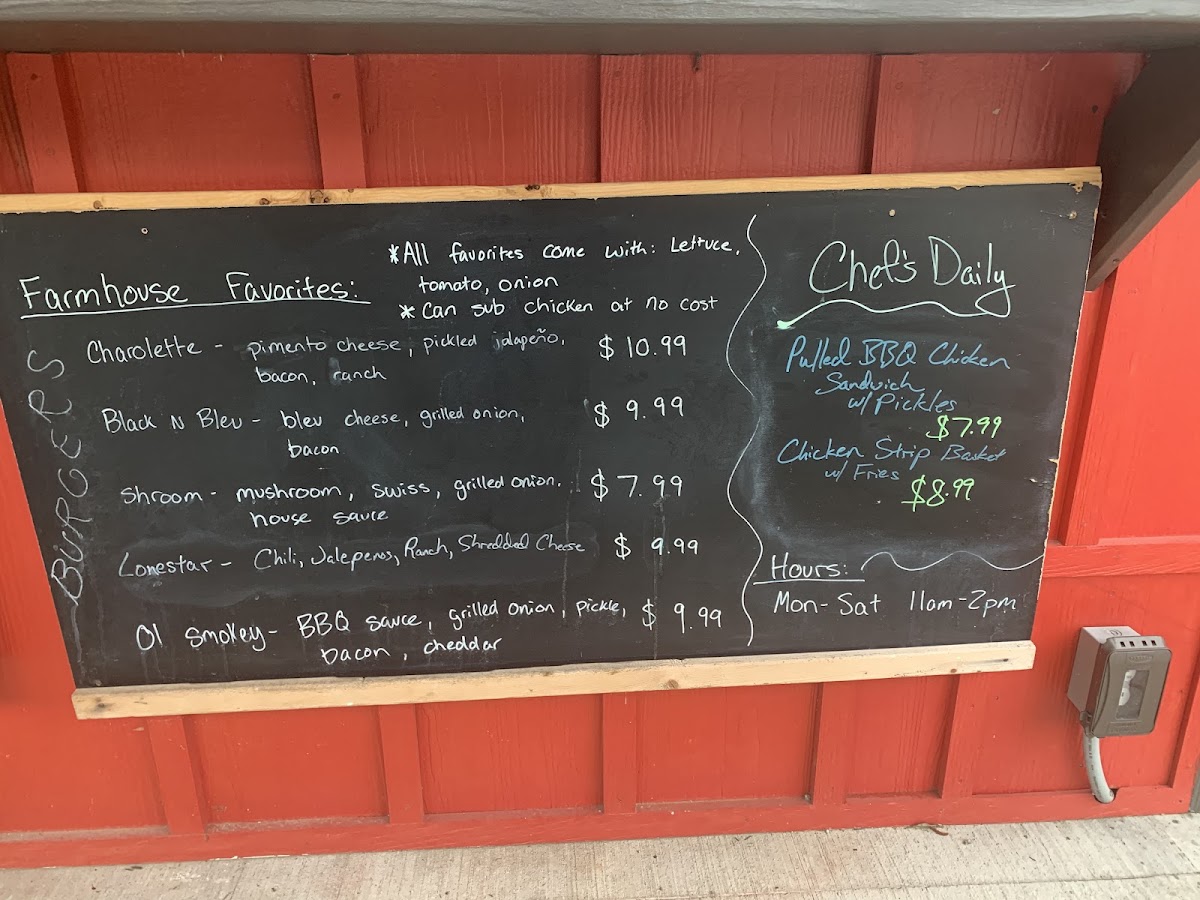 *All favorites come with: Lettuce,
tomato, onion
* Can sub chicken at no cost
Farmhouse Favorites:
BURGERS
Charolette - pimento cheese, pickled jalapeño, $ 10.99
bacon, ranch
Black N Bleu - bleu cheese, grilled onion, $ 9.99
bacon
Shroom - mushroom, swiss, grilled onion, $ 7.99
house sauce
Lonestar - Chili, Jalepenos, Ranch, Shredded Cheese $ 9.99
Ol Smokey - BBQ sauce, grilled onion, pickle, $ 9.99
bacon, cheddar
Chef's Daily
Pulled BBQ Chicken
Sandwich
w/ Pickles
$7.99
Chicken Strip Basket
w/ Fries
$8.99
Hours:
Mon-Sat 11am-2pm